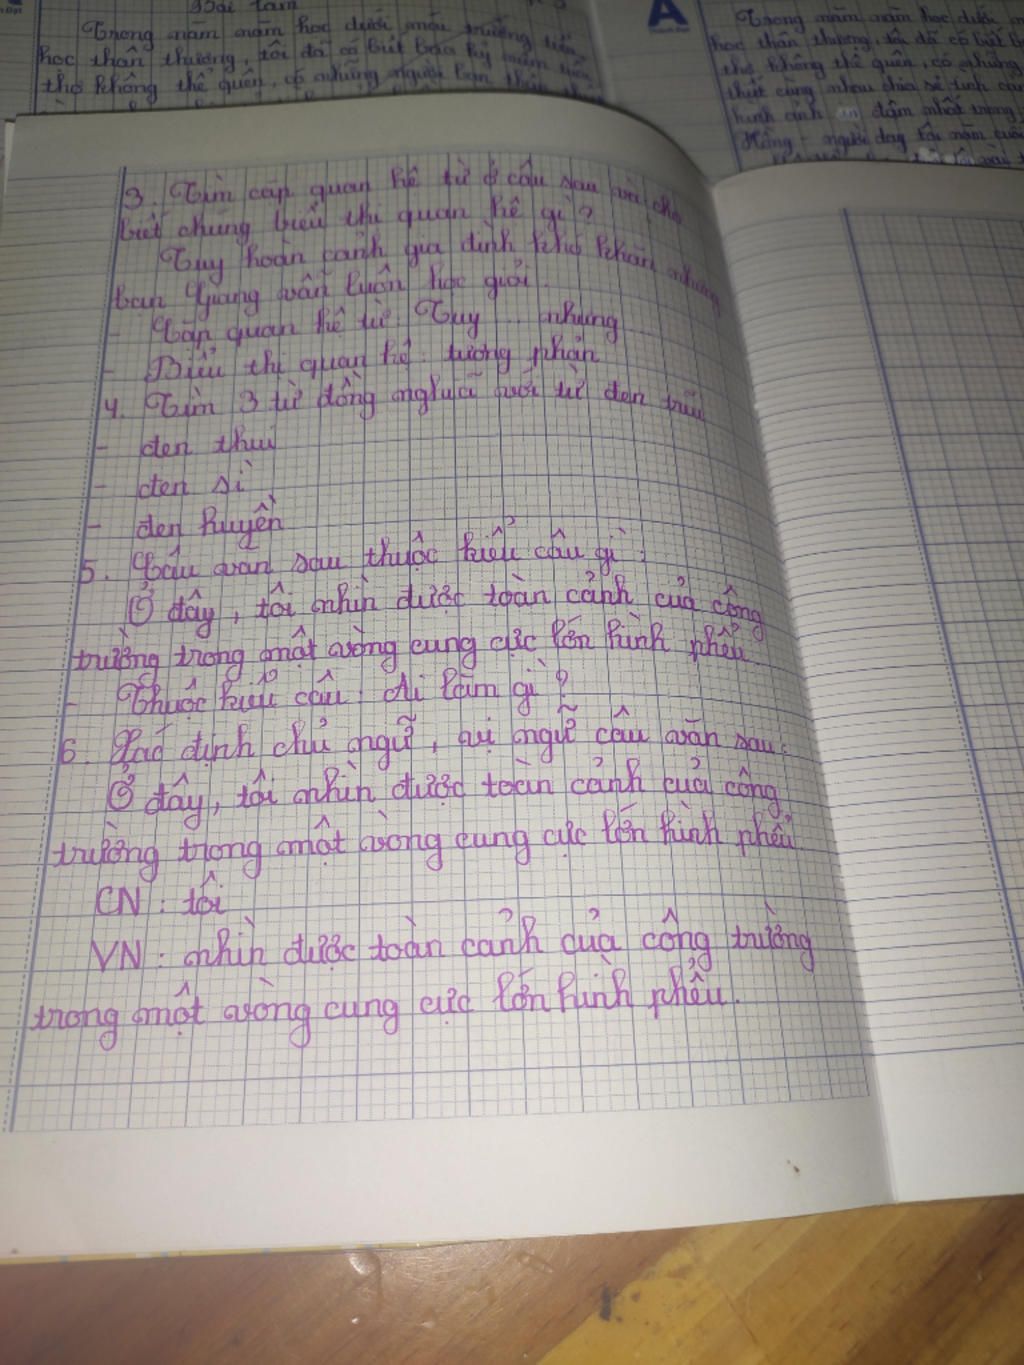 Bài làm
Trong năm năm học dưới mái trường tiểu
học thân thương, tôi đã có biết bao kỷ niệm
thơ không thể quên, có những người bạn thân
A
Trong năm năm học dưới
học thân thương, tôi đã có biết b
thơ không thể quên, có những
thiết cùng nhau chia sẻ tình cảm
hình ảnh đậm nhất trong
Hồng - người dạy tôi năm cuối
3. Tìm cặp quan hệ từ ở câu sau và cho
biết chúng biểu thị quan hệ gì?
Tuy hoàn cảnh gia đình khó khăn nhưng
bạn Giang vẫn luôn học giỏi.
- Cặp quan hệ từ: Tuy... nhưng
- Biểu thị quan hệ: tương phản
4. Tìm 3 từ đồng nghĩa với từ đen trũi
- đen thui
- đen sì
- đen huyền
5. Câu văn sau thuộc kiểu câu gì:
Ở đây, tôi nhìn được toàn cảnh của công
trường trong một vòng cung cực lớn hình phễu.
- Thuộc kiểu câu: Ai làm gì?
6. Xác định chủ ngữ, vị ngữ câu văn sau:
Ở đây, tôi nhìn được toàn cảnh của công
trường trong một vòng cung cực lớn hình phễu
CN: tôi
VN: nhìn được toàn cảnh của công trường
trong một vòng cung cực lớn hình phễu.